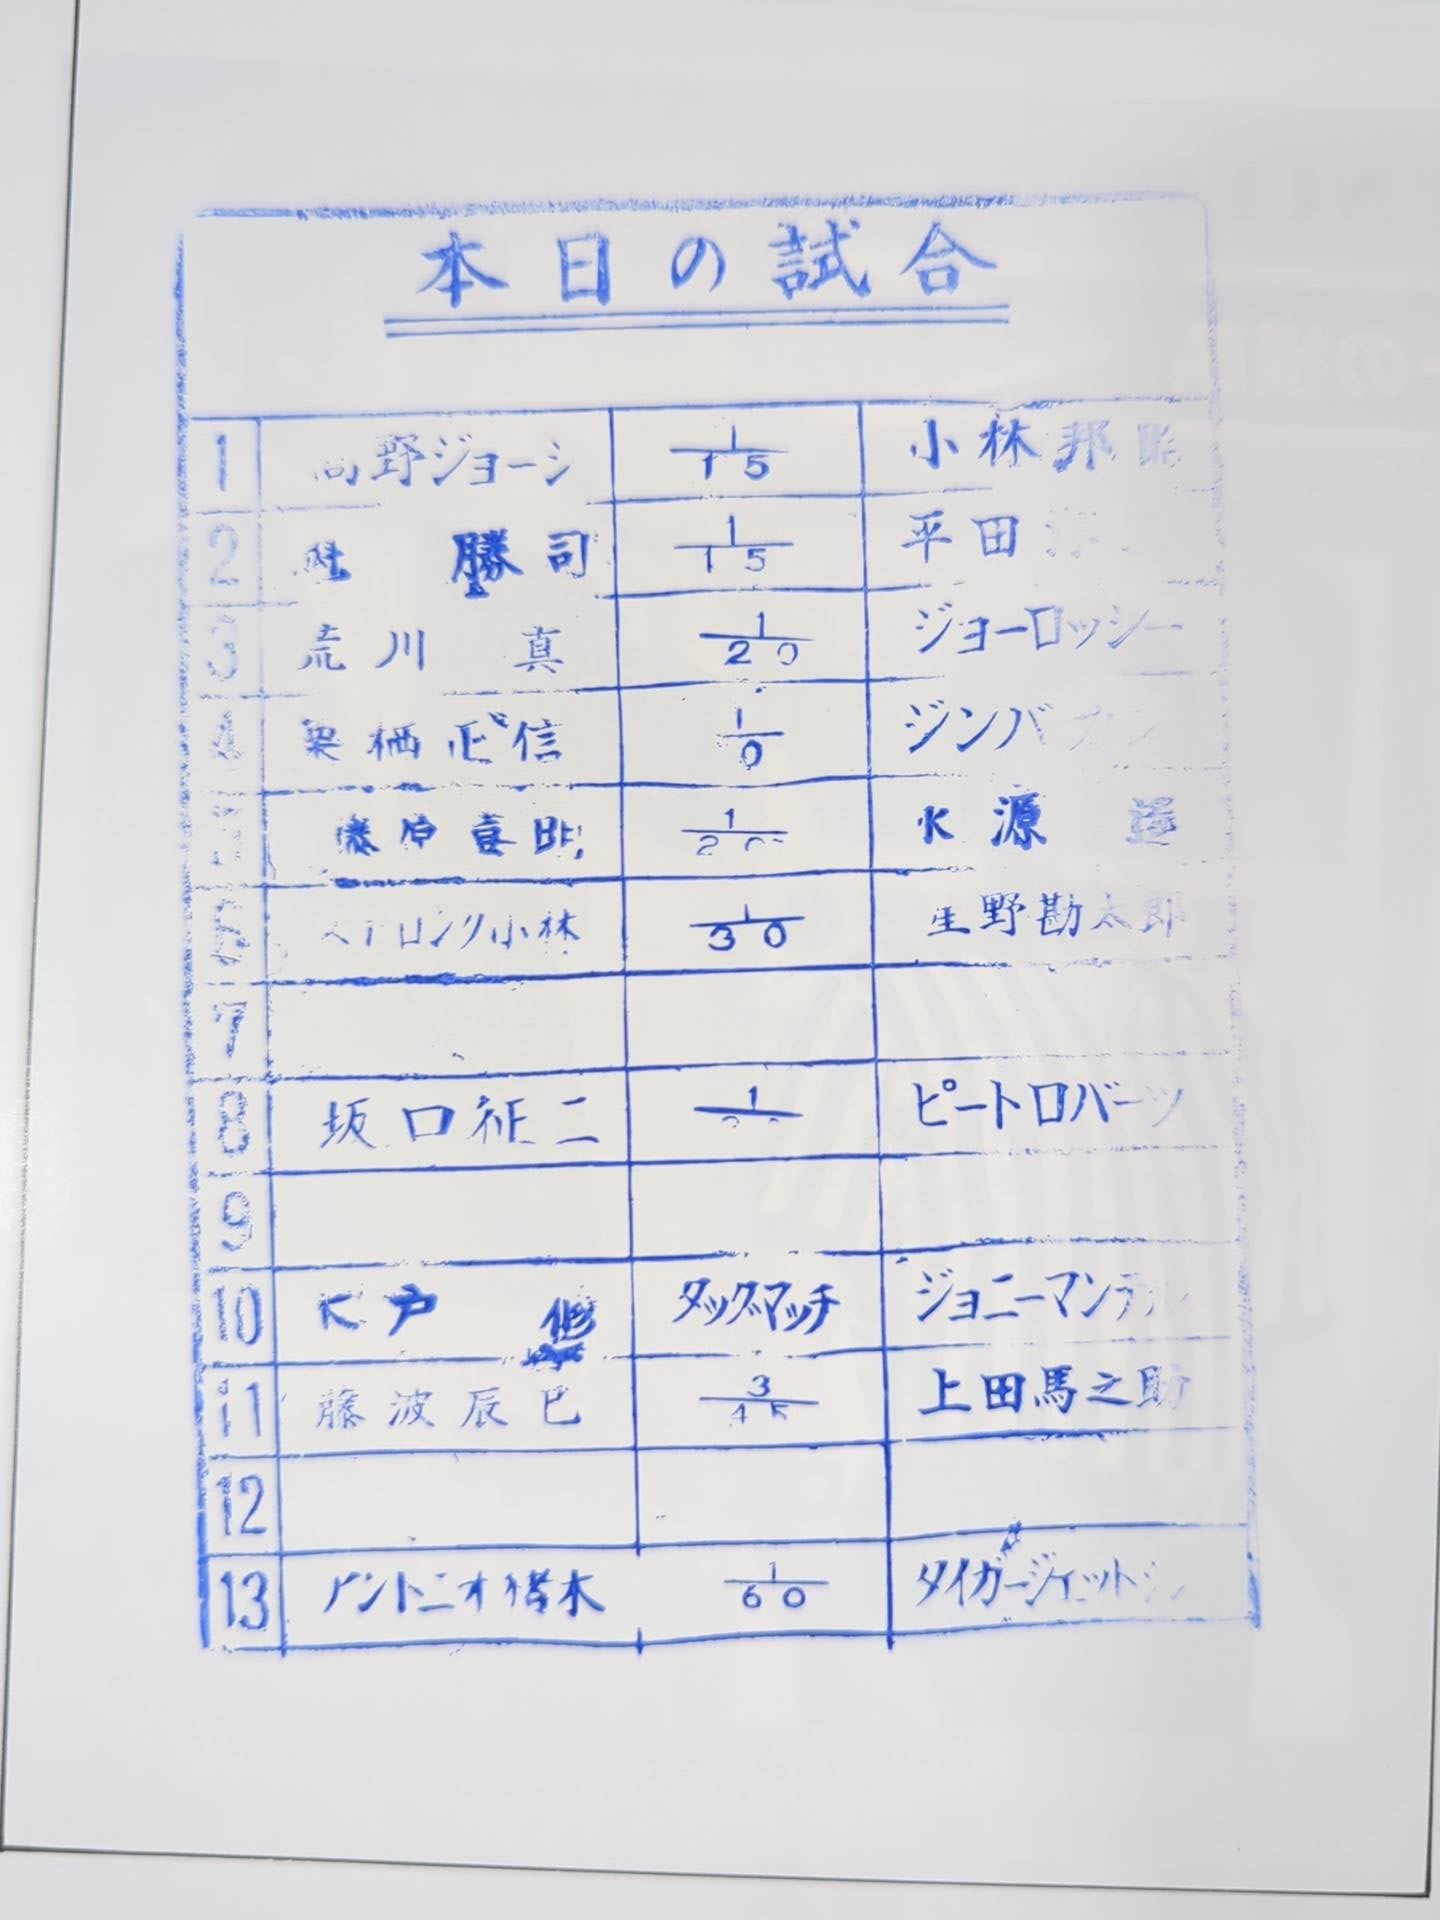 本日の試合
1 高野ジョージ 1/15 小林邦昭
2 勝司 1/15 平田
3 荒川 真 1/20 ジョーロッシー
4 栗栖正信 1/0 ジンバ
5 藤原喜明 1/20 水源
6 ストロング小林 1/30 生野勘太郎
7
8 坂口征二 1 ピートロバーツ
9
10 木戸 修 タッグマッチ ジョニーマンテル
11 藤波辰巳 3/45 上田馬之助
12
13 アントニオ猪木 1/60 タイガージェットシン